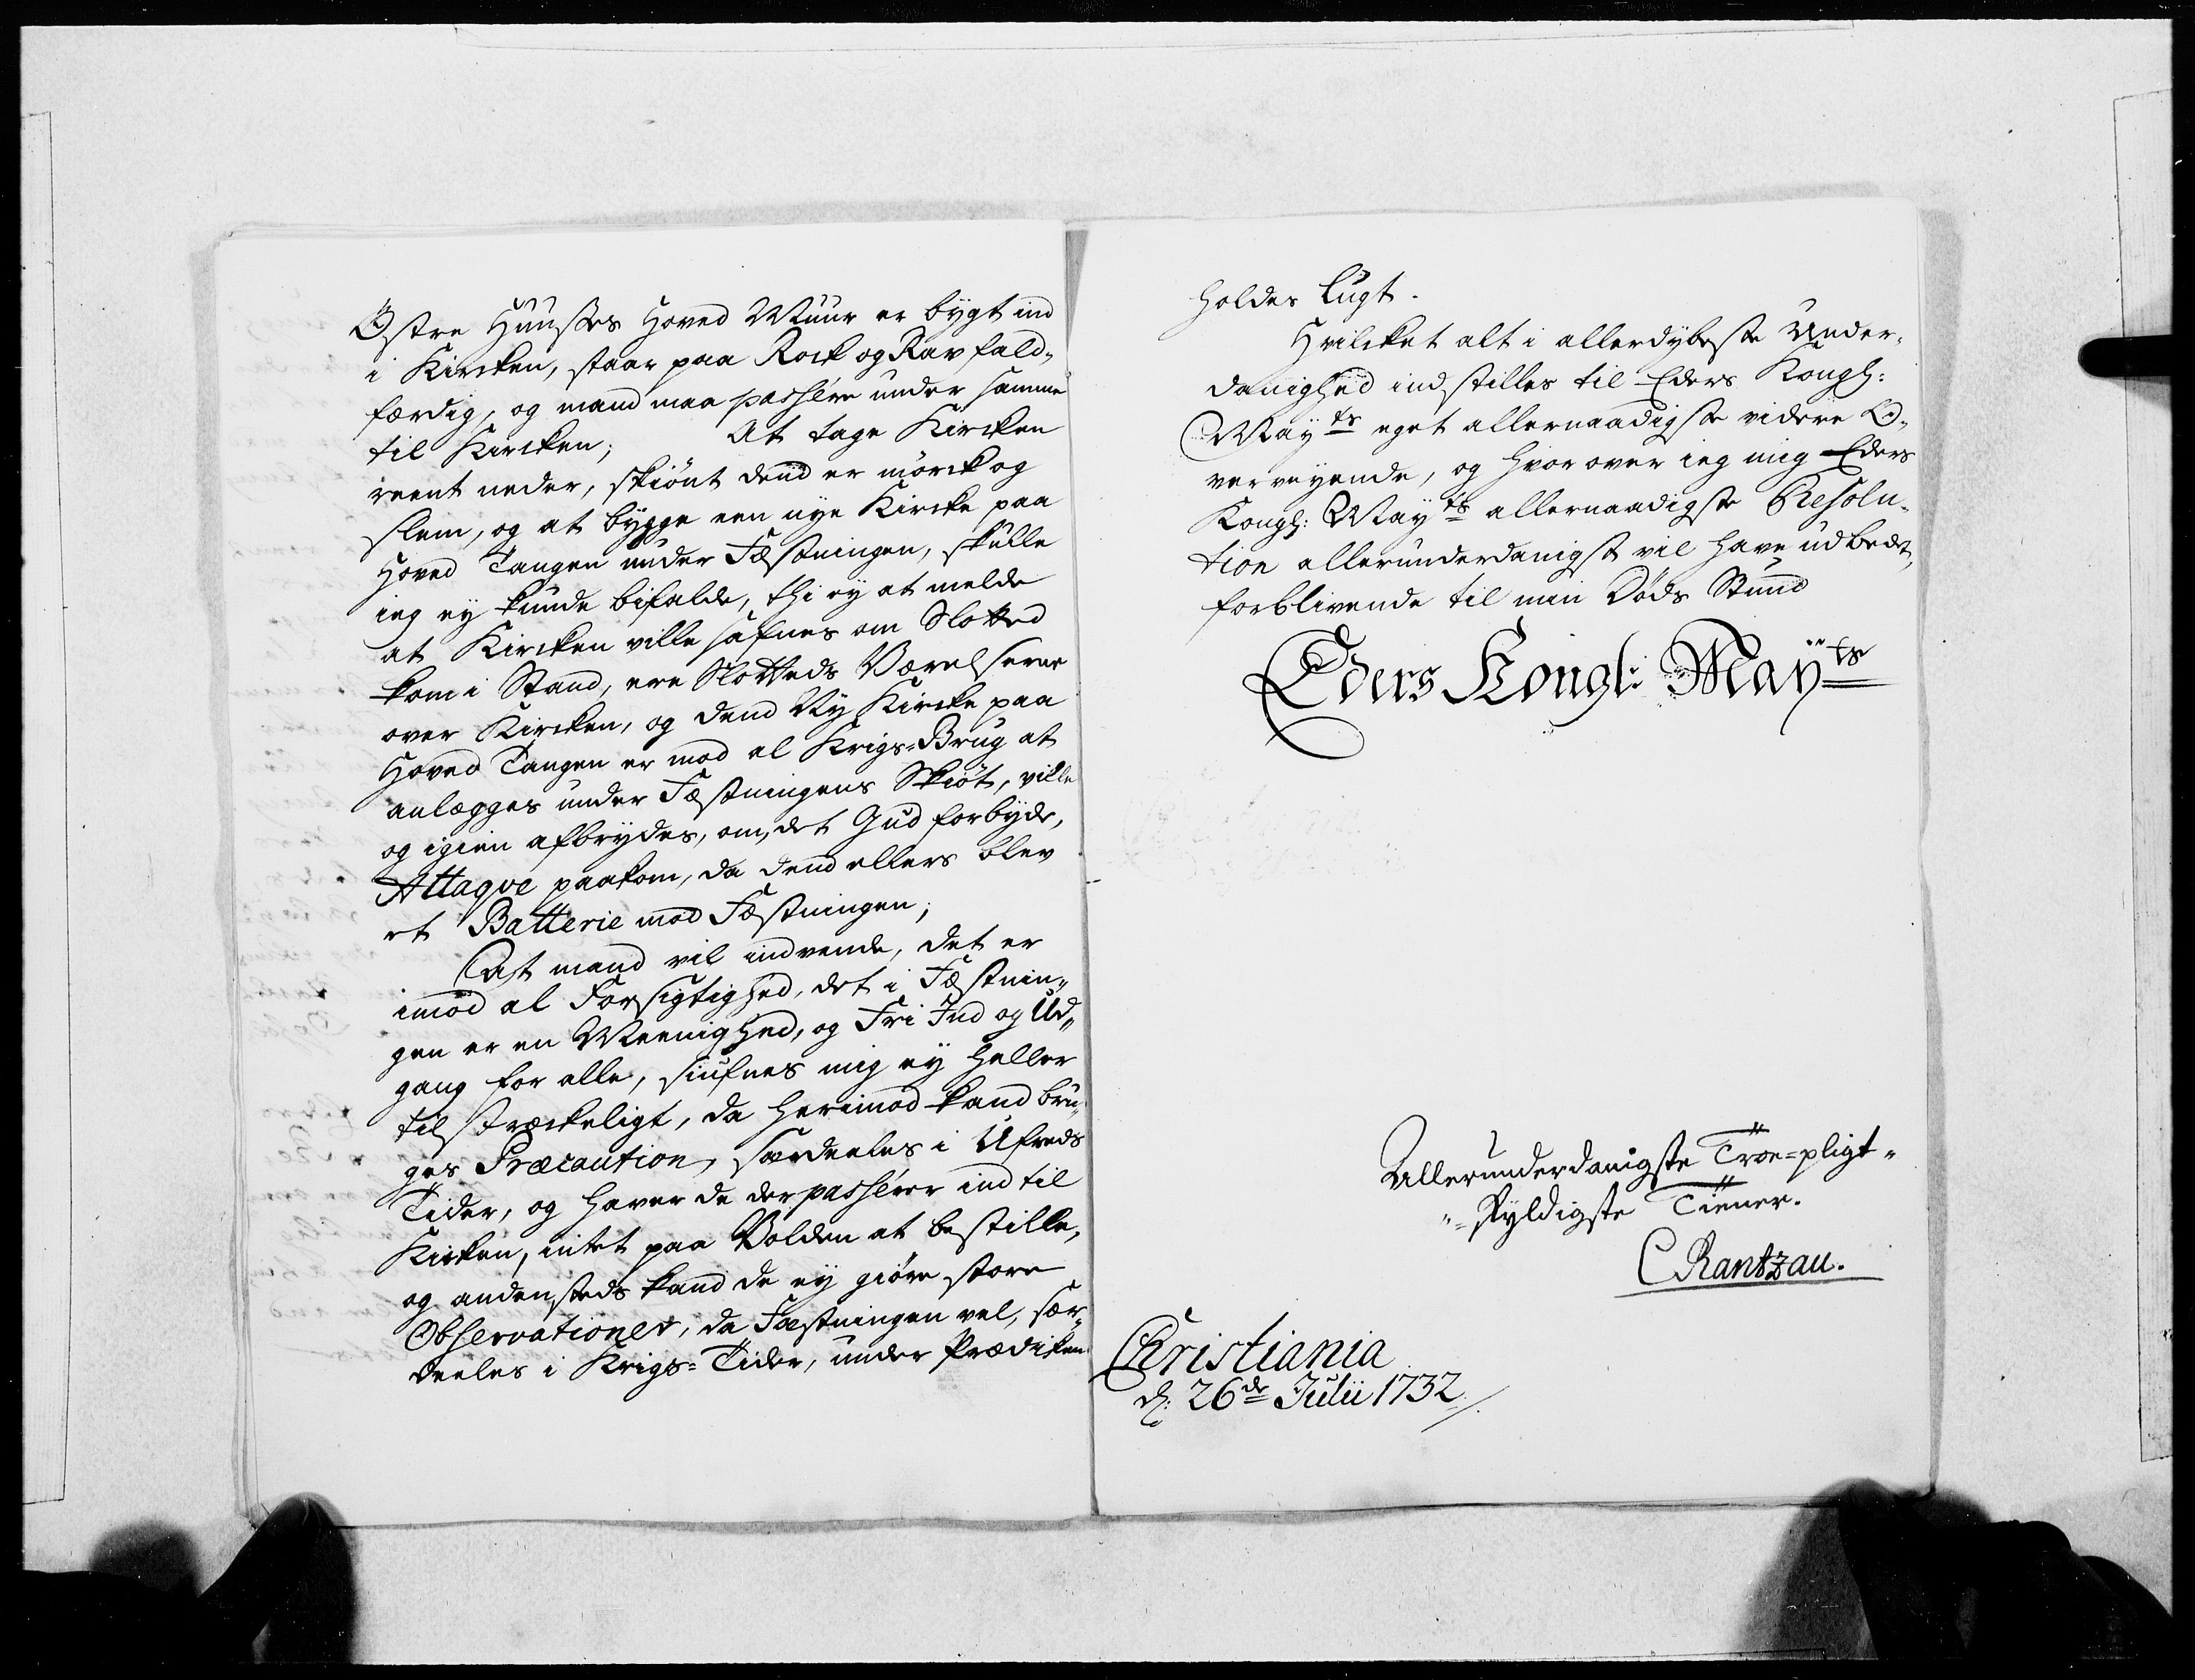 Østre Huusses Hoved Muur er bygt ind
i Kircken, staar paa Rock og Rav fald-
færdig, og mand maa passére under samme
til Kircken; At tage Kircken
reent neder, skiönt dend er mörck og
slem, og at bygge een nye Kircke paa
Hoved Tangen under Fæstningen, skulle
ieg ey kunde bifalde, thi ey at melde
at Kircken ville safnes om Slotted
kom i Stand, ere Slotteds Værelserne
over Kircken, og dend Ny Kircke paa
Hoved Tangen er mod al Krigs-Brug at
anlægges under Fæstningens Skiöt, ville
og igien afbrydes, om, det Gud forbyde,
Attaqve paakom, da dend ellers blev
et Batterie mod Fæstningen;
At mand vil indvende, det er
imod al Forsigtighed, det i Fæstnin-
gen er en Meenighed, og Fri Ind og Ud-
gang for alle, siufnes mig ey heller
tilstreckeligt, da herimod kand bru-
ges Præcaution, særdeeles i Ufreds
Tider, og haver de der passérer ind til
Kirken, intet paa Volden at bestille,
og andensteds kand de ey giöre store
Observationer, da Fæstningen vel, sær-
deeles i Krigs-Tider, under Prædiken
holdes lugt.
Hvilcket alt i allerdybeste Under-
danighed indstilles til Eders Kongl:
Mayts eget allernaadigste videre O-
verveyende, og hvorover ieg mig Eders
Kongl: Mayts allernaadigste Resolu-
tion allerunderdanigst vil have udbedt,
forblivende til min Døds Stund
Eders Kongl: Mayts
Allerunderdanigste Troe-pligt-
-skyldigste Tiener.
C Rantzau.
Christiania
d: 26de Julii 1732